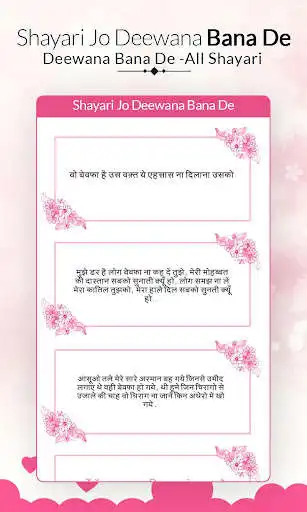 Shayari Jo Deewana Bana De
Deewana Bana De -All Shayari
Shayari Jo Deewana Bana De
वो बेवफा है उस वक़्त ये एहसास ना दिलाना उसको
मुझे डर है लोग बेवफा ना कह दें तुझे. मेरी मोहब्बत
की दास्तान सबको सुनाती क्यूँ हो. लोग समझ ना ले
मेरा कातिल तुझको, मेरा हाले दिल सबको सुनती क्यूँ
हो .
आसूओ तले मेरे सारे अरमान बह गये जिनसे उमीद
लगाए थे वही बेवफा हो गये, थी हुमे जिन चिरागो से
उजाले की चाह वो चिराग ना जाने किन अंधेरो मे खो
गये .